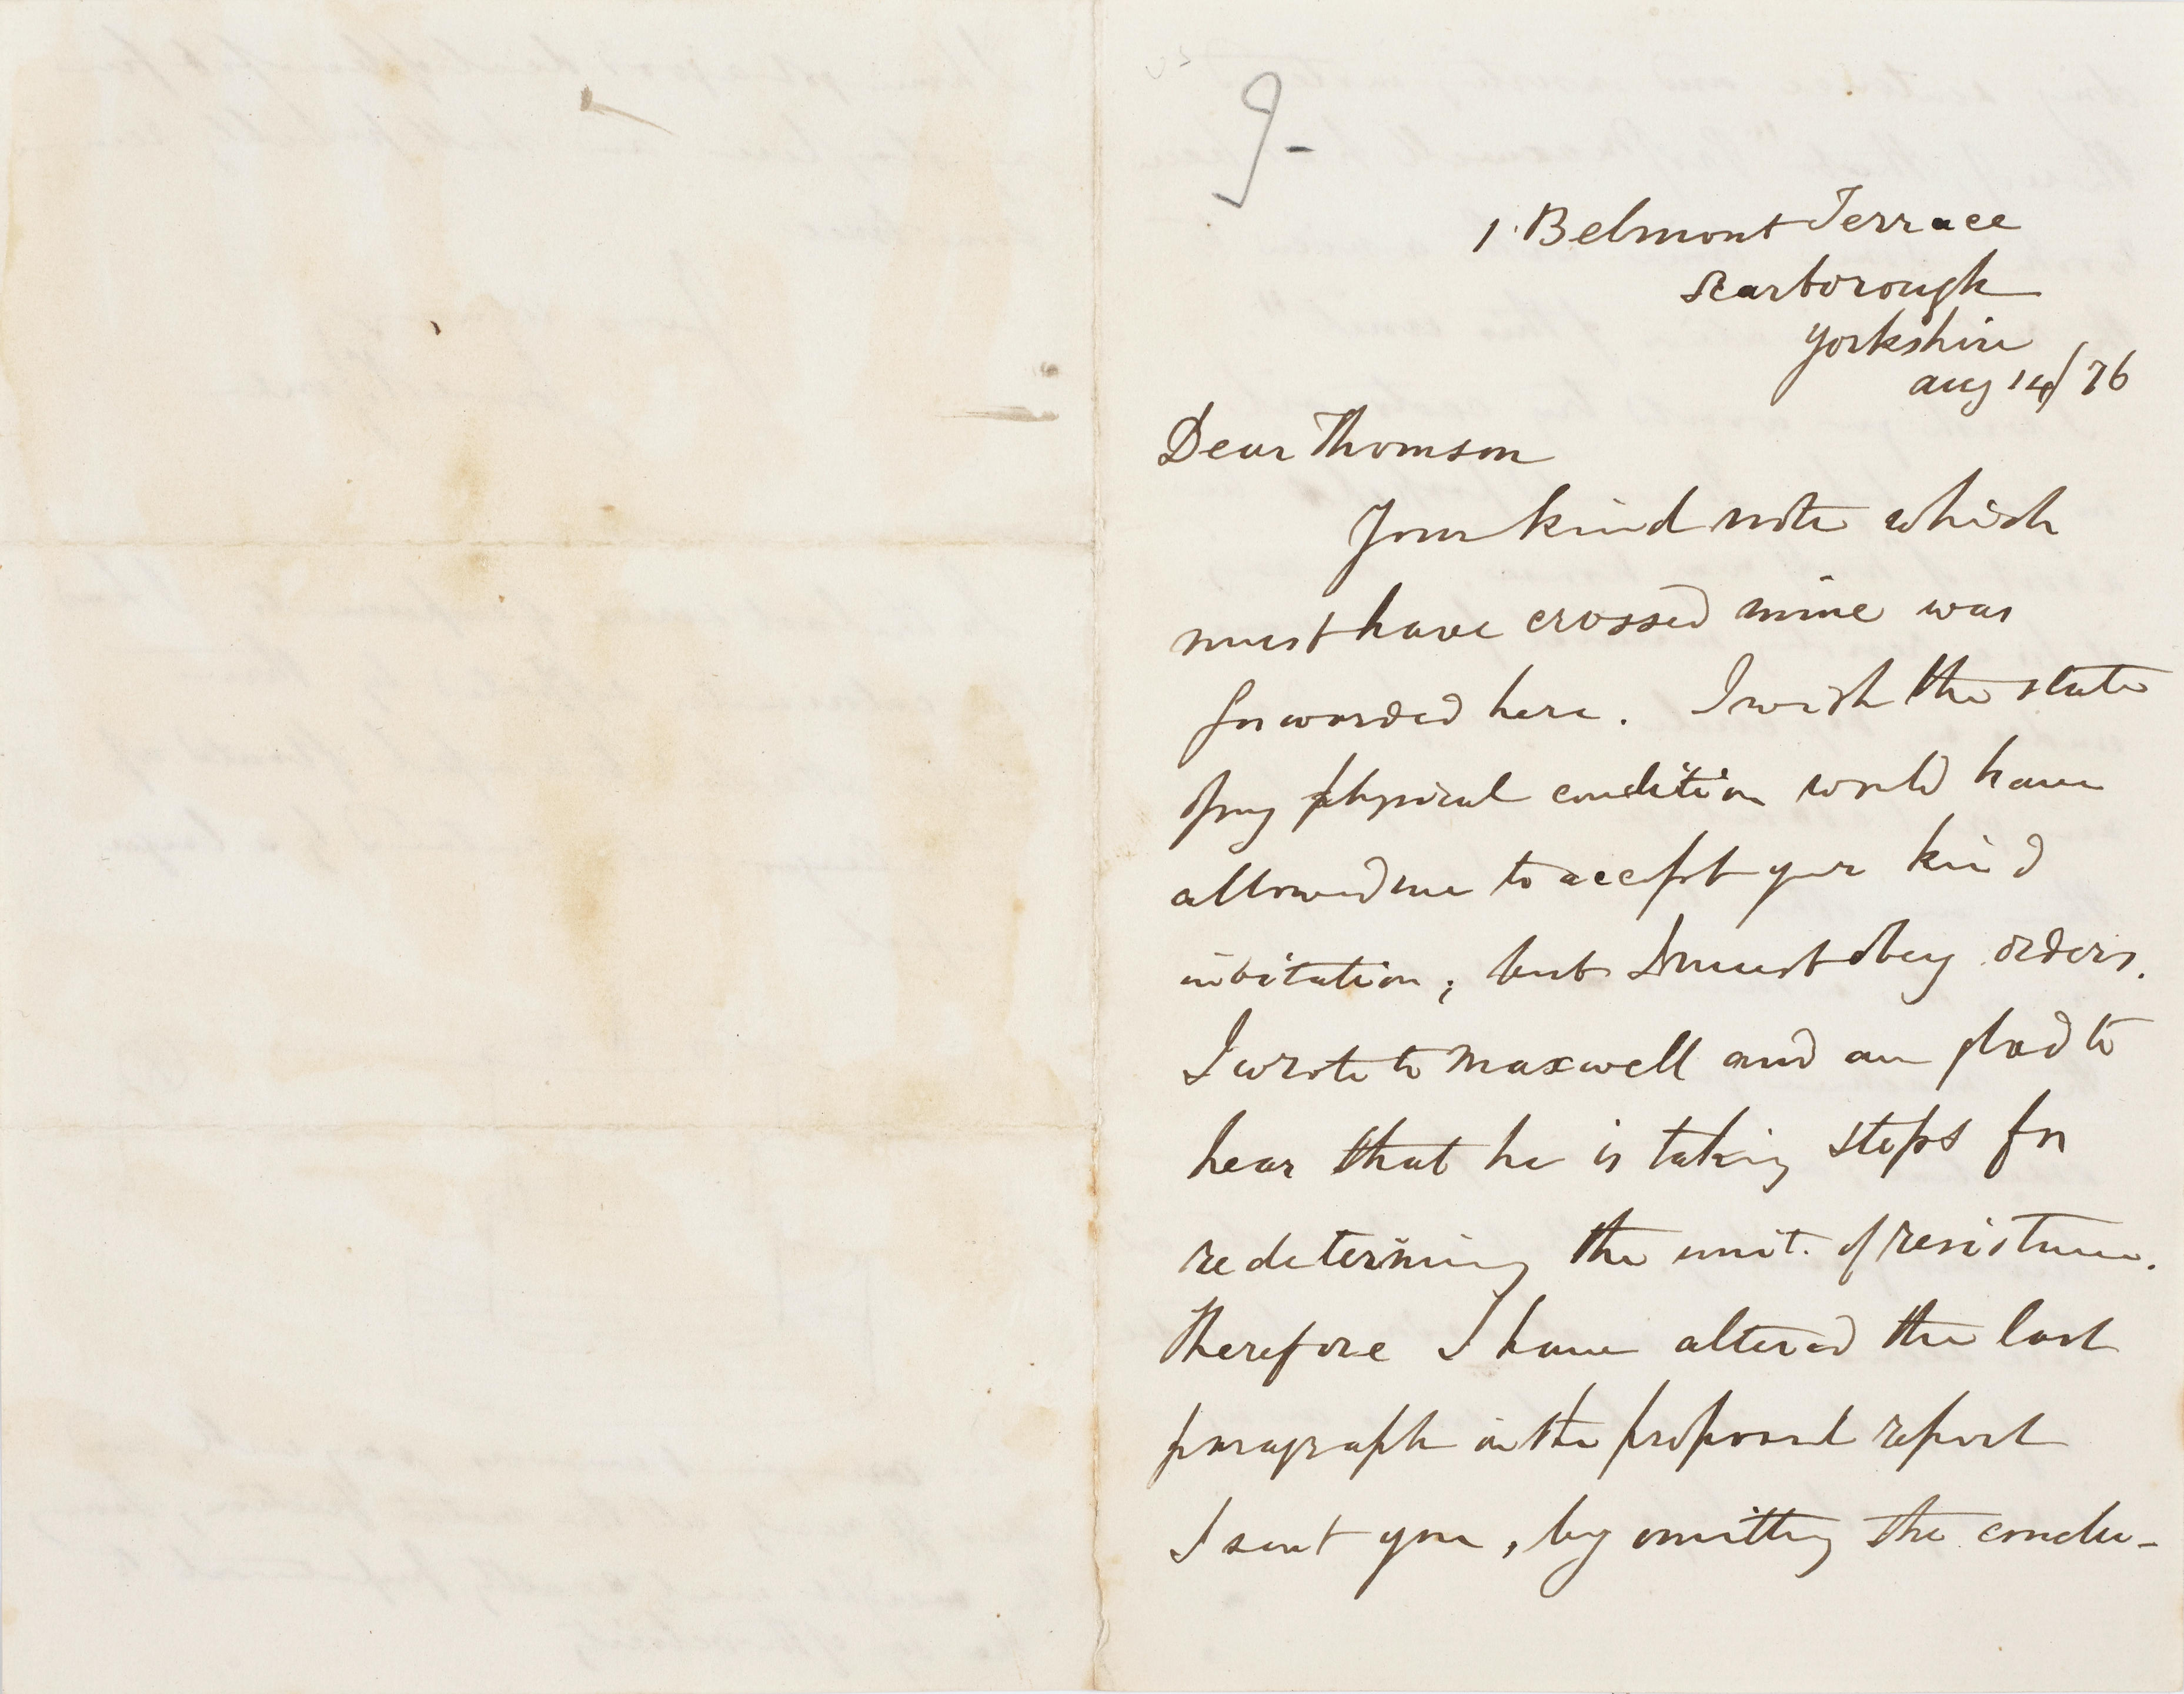 J-
1 Belmont Terrace
Scarborough
Yorkshire
Aug 14/76
Dear Thomson
Your kind note which
must have crossed mine was
forwarded here. I wish the state
of my physical condition would have
allowed me to accept your kind
invitation; but I must obey orders.
I wrote to Maxwell and am glad to
hear that he is taking steps for
redetermining the unit of resistance.
Therefore I have altered the last
paragraph in the proposed report
I sent you, by omitting the conclu-